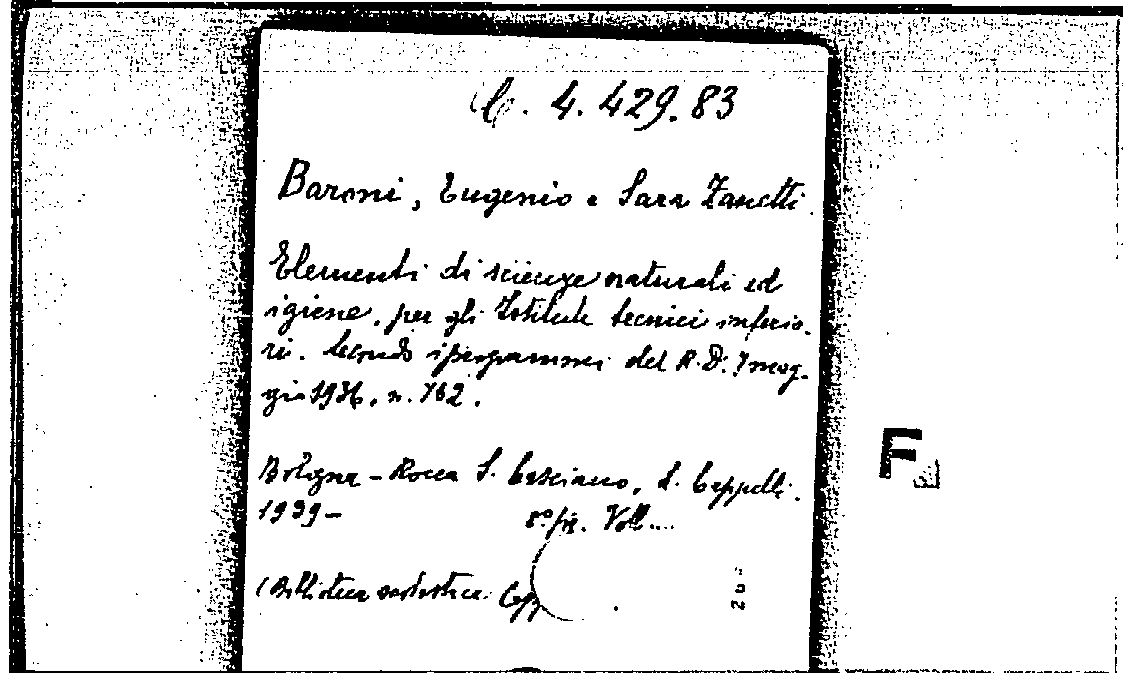 C. 4. 429. 83
Baroni, Eugenio e Sara Zanetti.
Elementi di scienze naturali ed
igiene, per gli Istituti tecnici inferio-
ri. Secondo i programmi del R. D. 7 mag-
gio 1936, n. 762.
Bologna - Rocca S. Casciano, L. Cappelli.
1939 -
8º fig. Voll....
(Biblioteca scolastica Capp
F